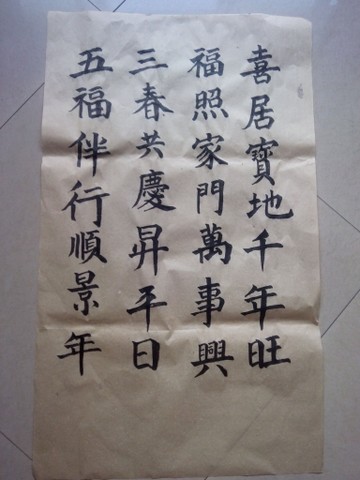 喜居寶地千年旺
福照家門萬事興
三春共慶昇平日
五福伴行順景年